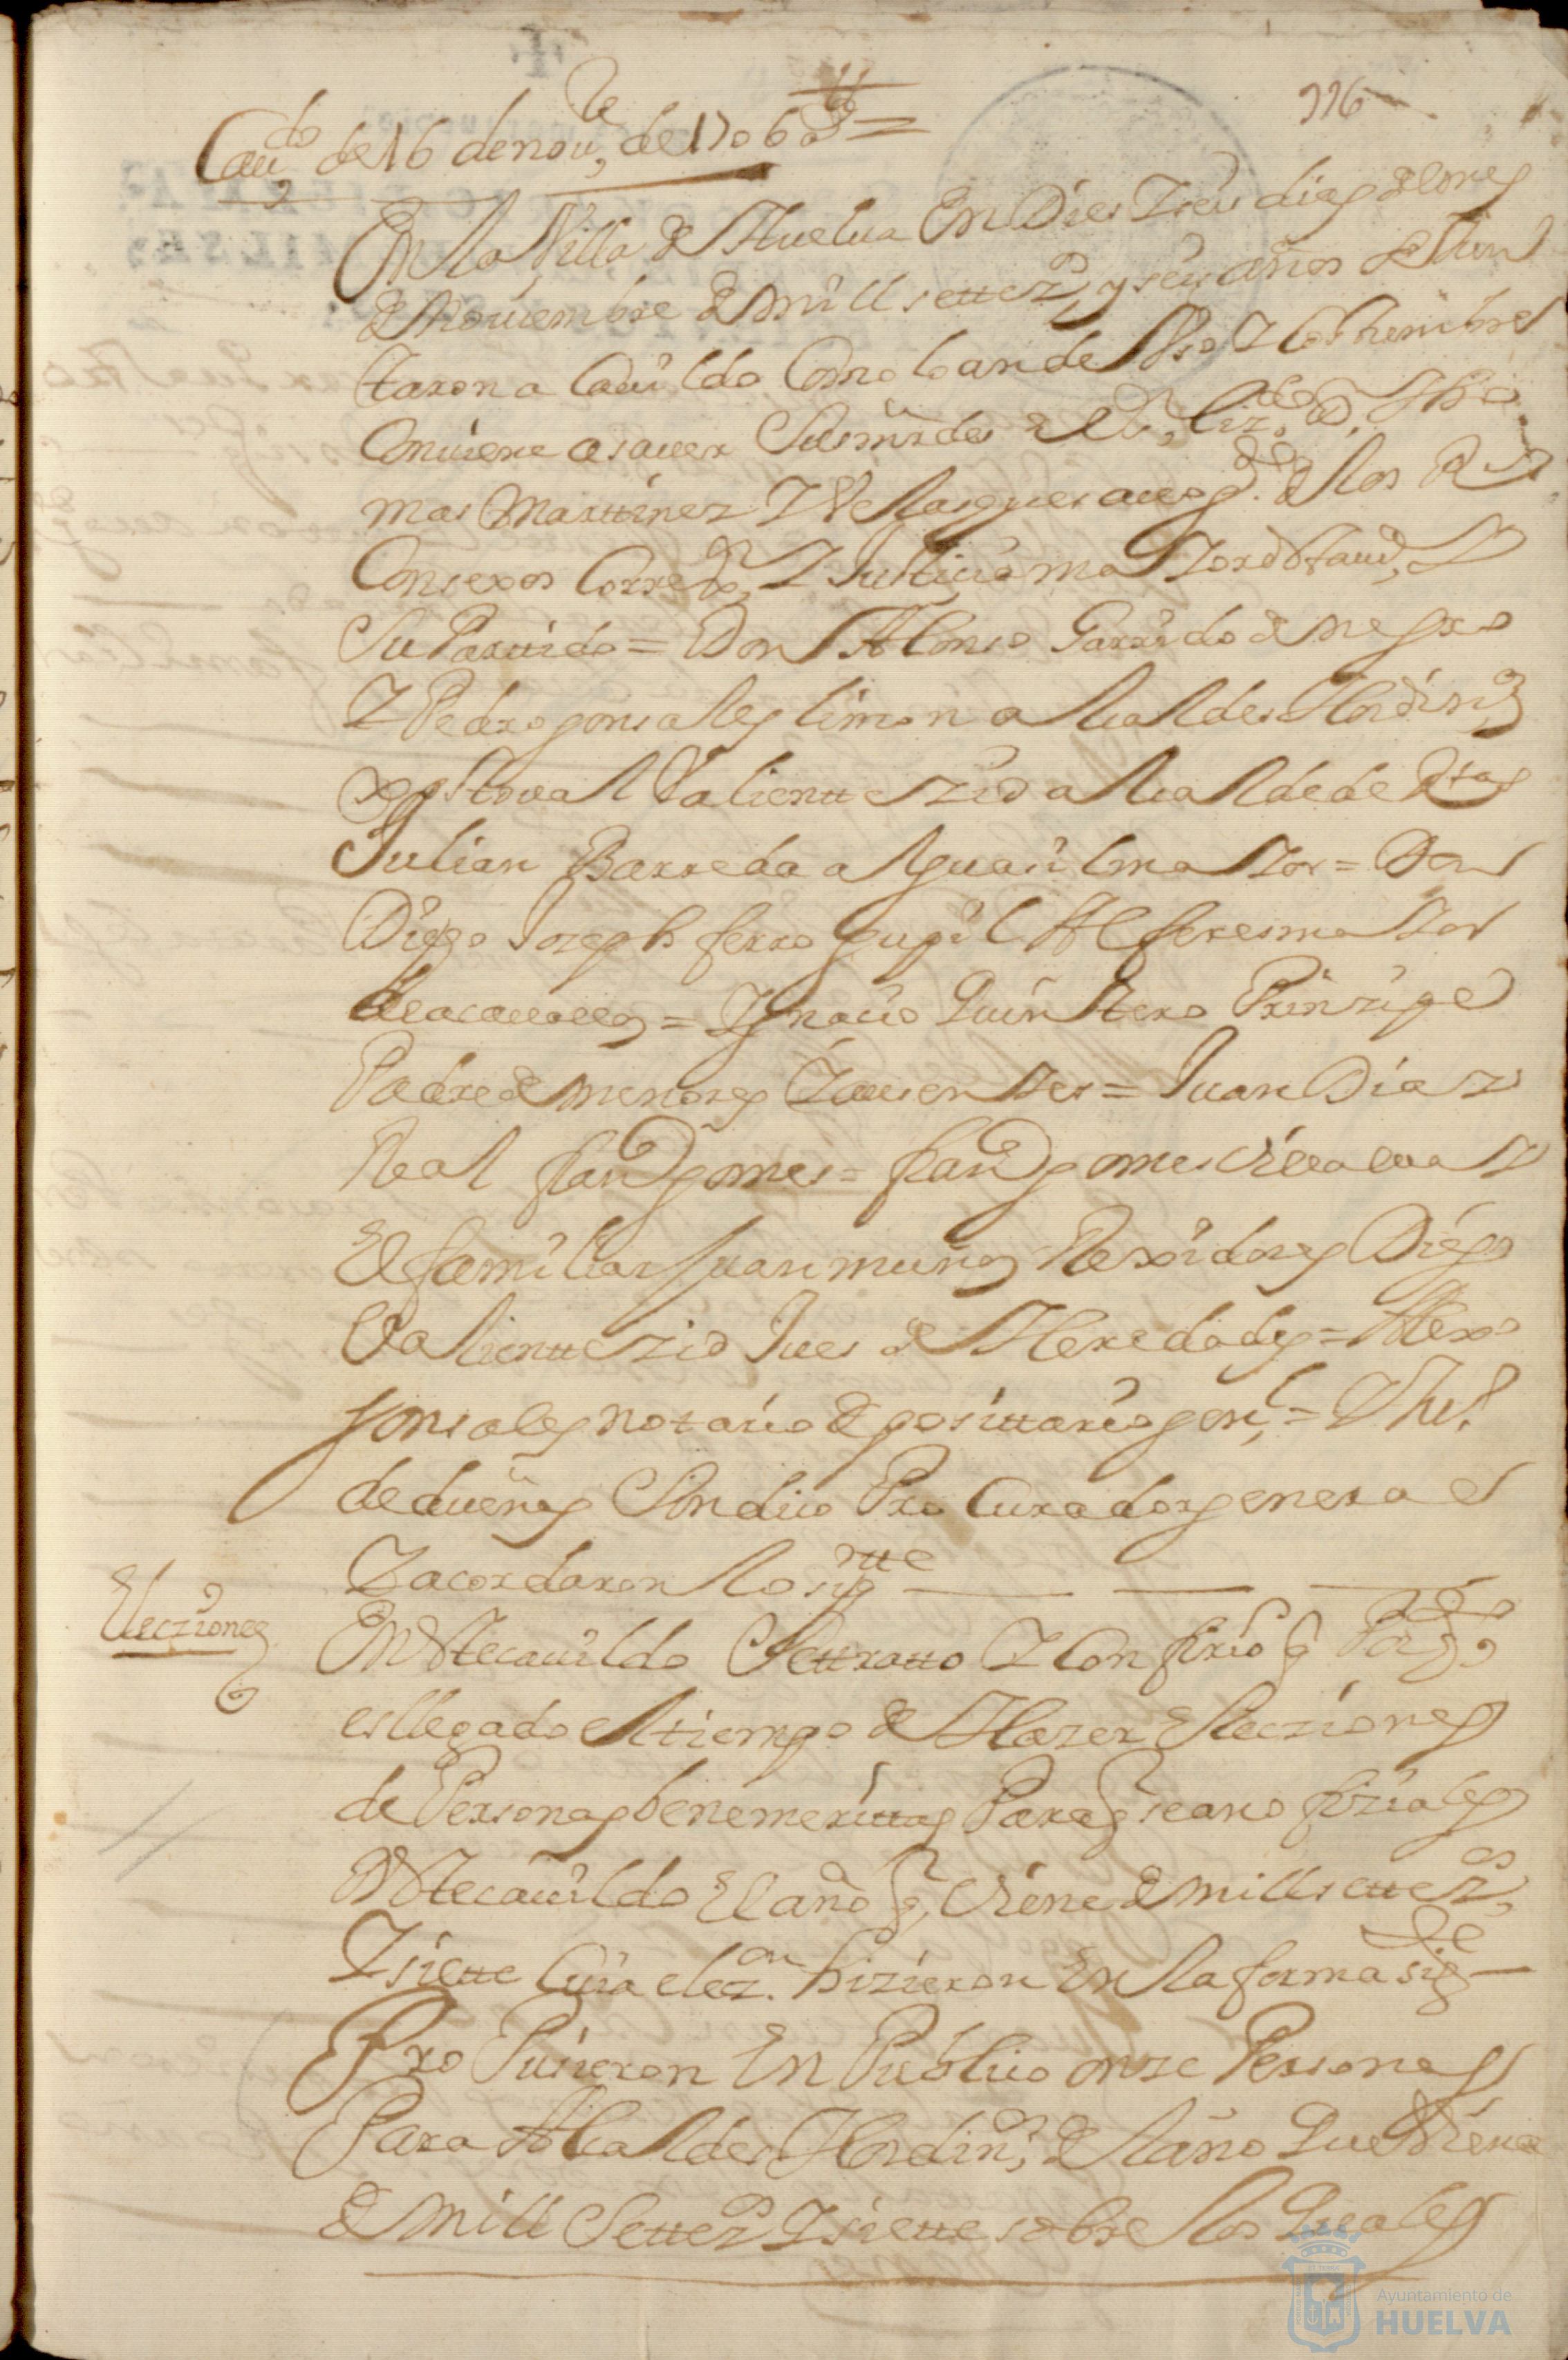 116
Cauº de 16 de nouᵉ de 1706 aˢ =
En la Villa de Huelua En Dies Y seis dias del mes
de Nouiembre de mill settezˢ y seis años se Jun
taron a Cauildo Como lo an de Vso Y Costumbre
Combiene a sauer Sus mrdes el Sʳ Lizᵈᵒ D. Tho
mas Marttinez Y Velasques auogᵈᵒ de los Rˢ
Consexos Corregºʳ Y Justicia maYor desta uª Y
Su Partido = Don Alonso Garrido de negro
Y Pedro gonsales limon alcaldes Hordinˢ
xpstoual Valiente Zid alcalde de Rtas
Julian Barreda alguasil maYor = Don
Diego Joseph ferro Alferes maYor
Ygnacio Quintero Prinzipe
Padre de menores Y ausenYes = Juan Dias
Real franᶜᵒ gomes = franᶜᵒ gomes Y
El familiar Juan muños Rexidores Diego
Valientte Zid Jues de Heredades = Alexo
gonsales notario deposittario genˡ = Y
de dueñas Sindico Procurador general
Y acordaron lo sigᵗᵉ
Elecziones
En este cauildo Se tratto Y Confirio q
es llegado el tiempo de Hazer Elecziones
de Personas benemerittas Para q sean ofiziales
deste cauildo El año q Viene de mill settezˢ
Y siette Cuia elezᵒⁿ hizieron En la forma sigᵗᵉ
ProPusieron En Publico onze Personas
Para Alcaldes Hordinˢ del año Que Viene
de mill Settezˢ Y siette sobre los Quales
Ayuntamiento de
HUELVA